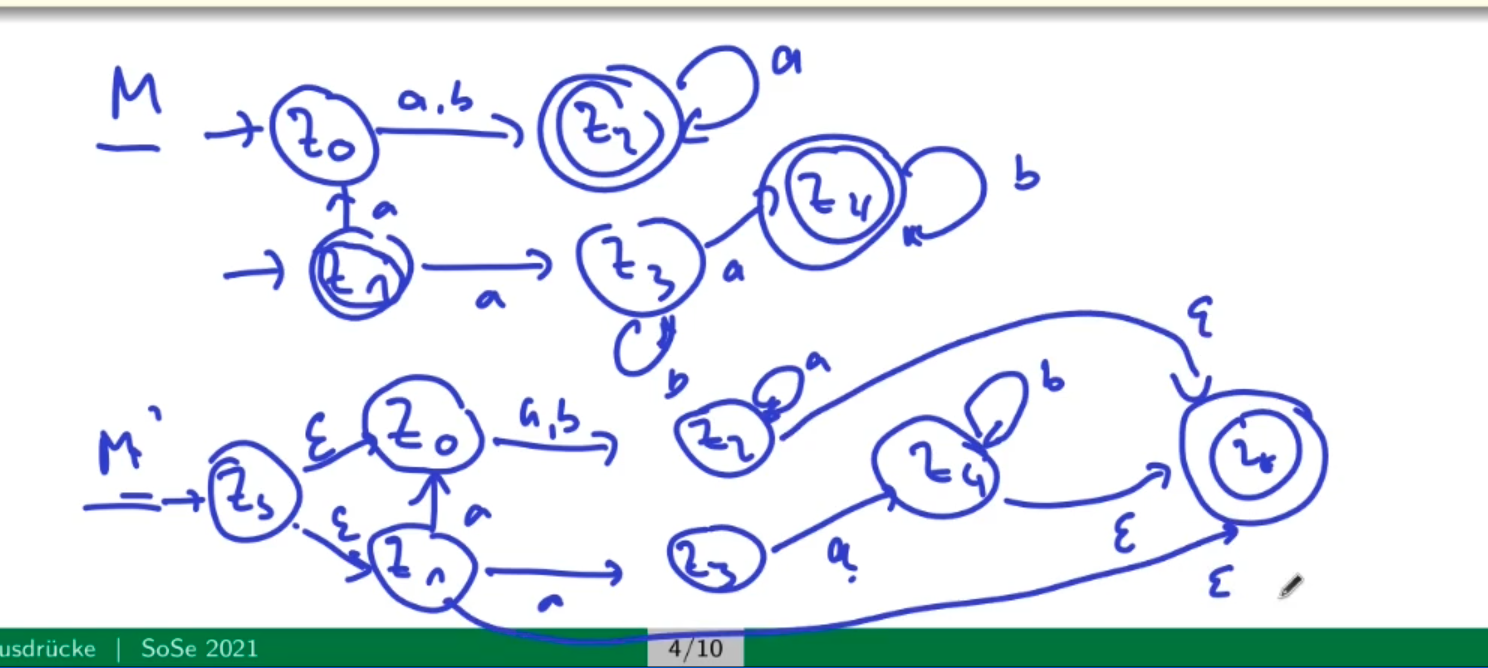 M
z₀ a,b z₂ a
a z₄ b
z₁ a z₃ a
b
M'
zₛ ε z₀ a,b z₂ a ε
ε a z₄ b ε
z₁ a z₃ a ε
usdrücke | SoSe 2021 4/10